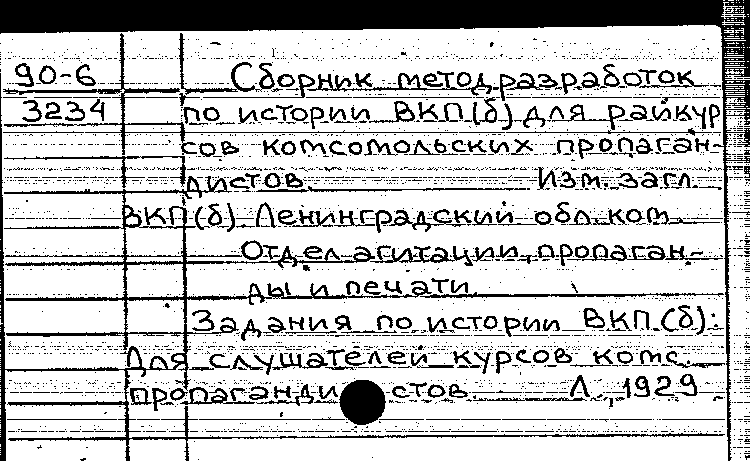 90-6 Сборник метод.разработок
3234 по истории ВКП(б) для райкур
сов комсомольских пропаган-
дистов. Изм. загл.
ВКП(б). Ленинградский обл. ком.
Отдел агитации, пропаган-
ды и печати.
Задания по истории ВКП(б):
Для слушателей курсов комс.
пропагандистов. Л., 1929.